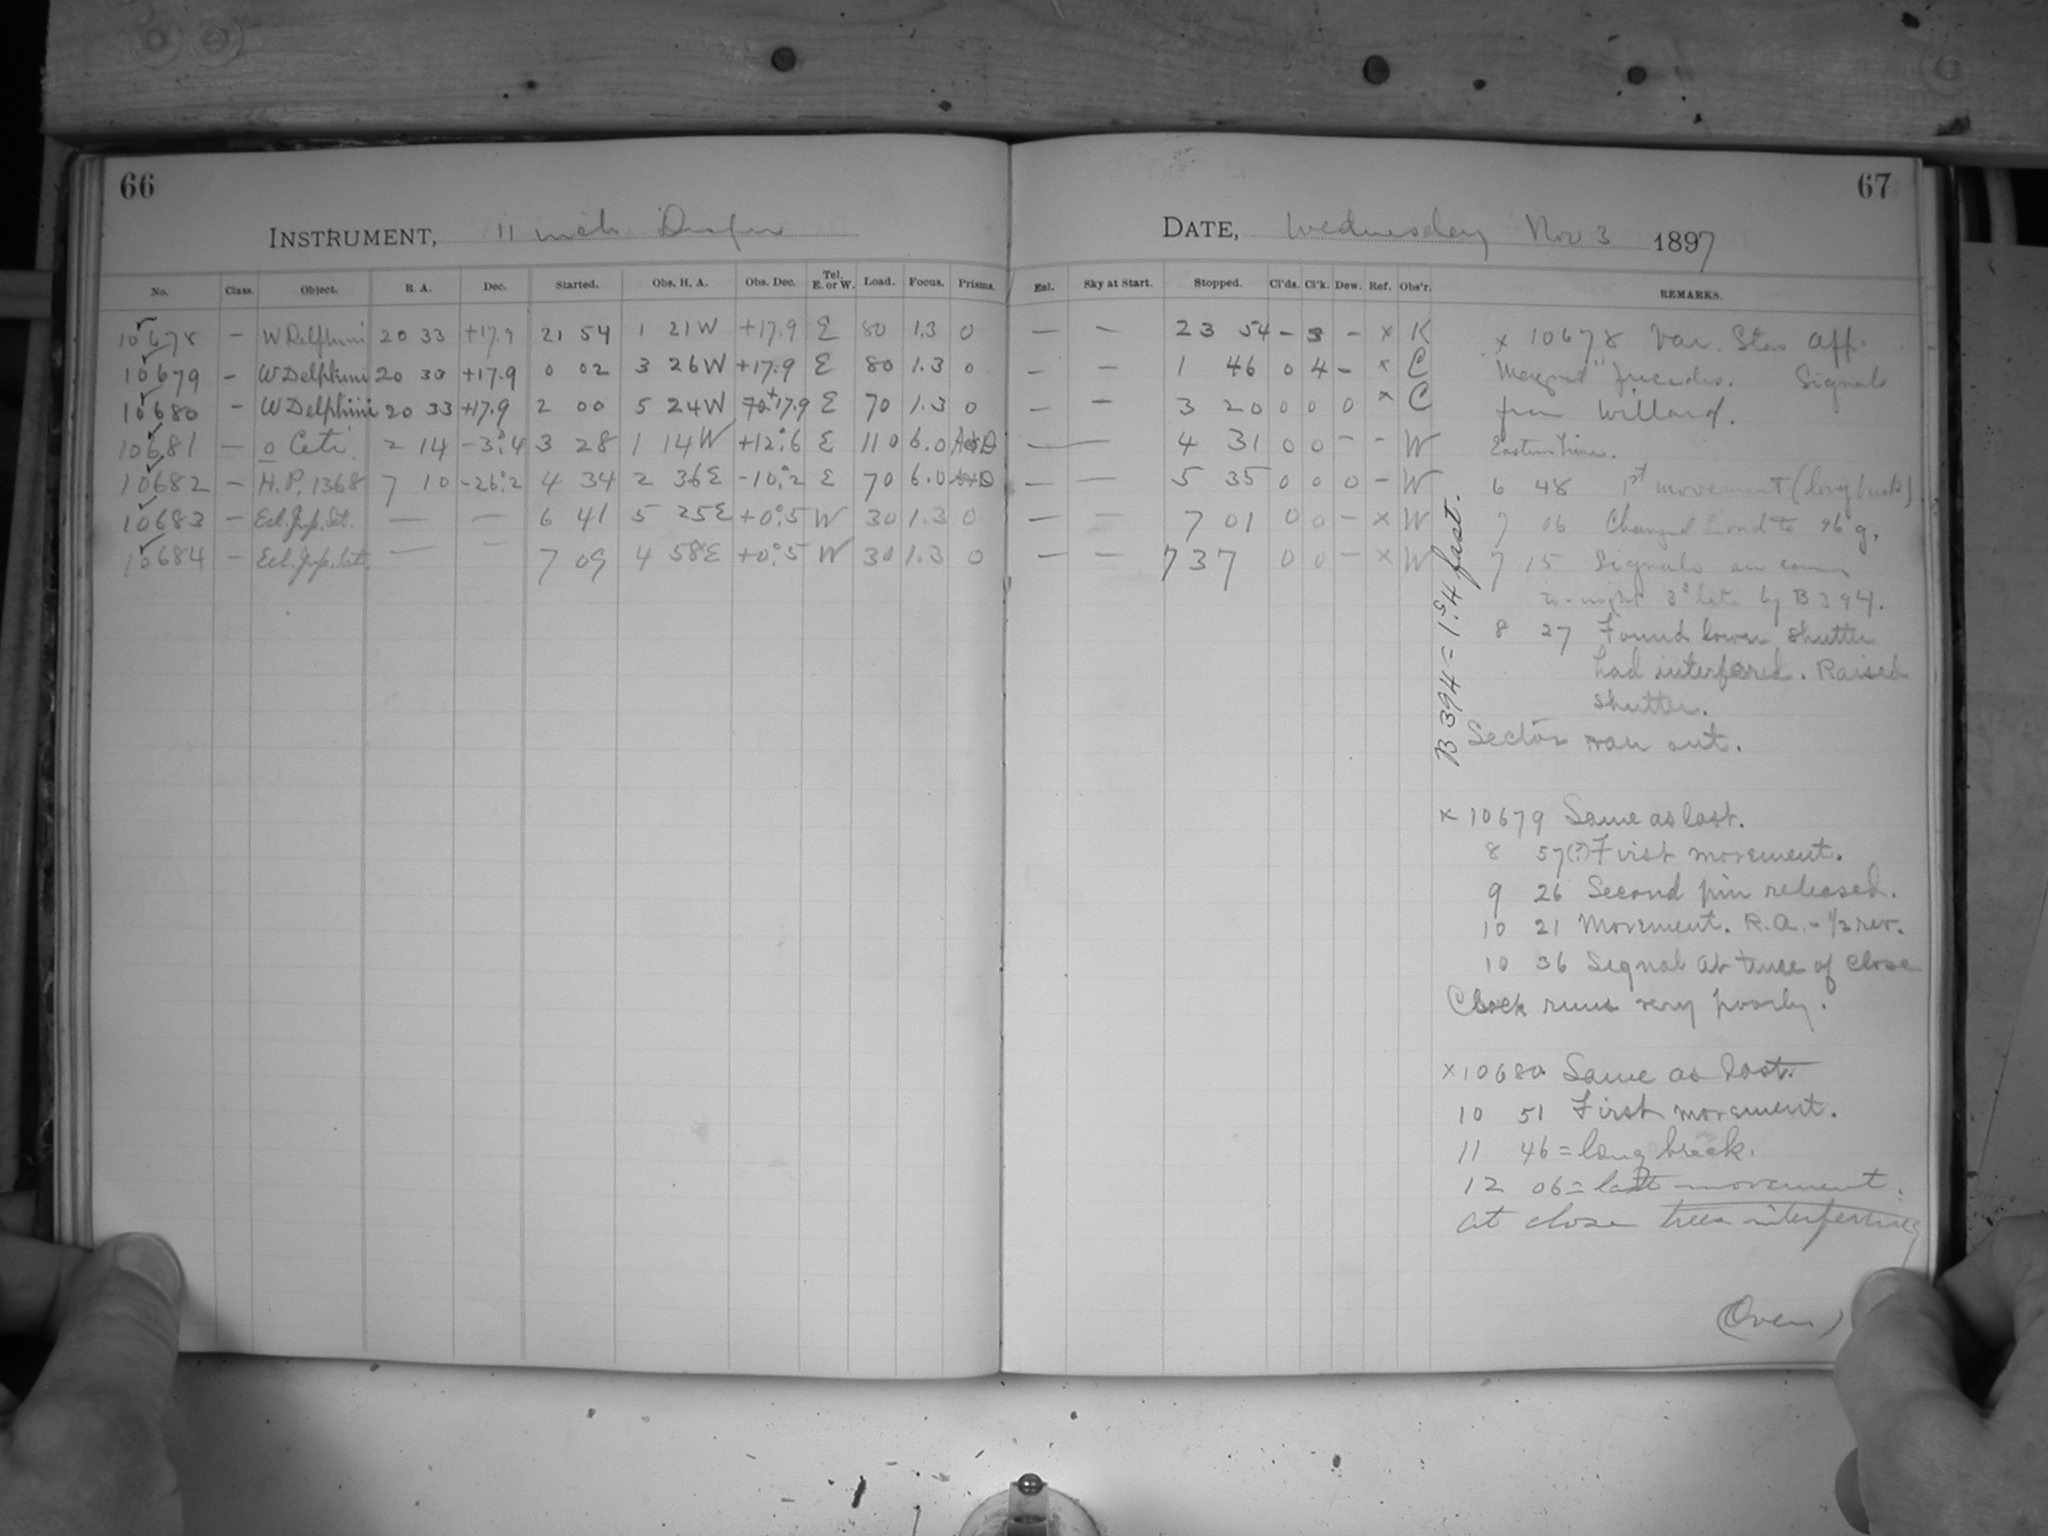 66
INSTRUMENT, 11 inch Draper
No. Class. Object. R. A. Dec. Started. Obs. H. A. Obs. Dec. Tel. E. or W. Load. Focus. Prisms.
10678 – W Delphini 20 33 +17.9 21 54 1 21 W +17.9 E 80 1.3 0
10679 – W Delphini 20 33 +17.9 0 02 3 26 W +17.9 E 80 1.3 0
10680 – W Delphini 20 33 +17.9 2 00 5 24 W +17.9 E 70 1.3 0
10681 – o Ceti. 2 14 -3°.4 3 28 1 14 W +12°.6 E 110 6.0
10682 – H.P. 1368 7 10 -26°.2 4 34 2 36 E -10°.2 E 70 6.0
10683 – Ecl. Jup. Sat. — — 6 41 5 25 E +0°.5 W 30 1.3 0
10684 – Ecl. Jup. Sat. — — 7 09 4 58 E +0°.5 W 30 1.3 0
67
DATE, Wednesday Nov 3 1897
Enl. Sky at Start. Stopped. Cl'ds. Cl'k. Dew. Ref. Obs'r. REMARKS.
— — 23 54 – 3 – x K
— — 1 46 0 4 – x C
— — 3 20 0 0 0 x C
— — 4 31 0 0 – – W
— — 5 35 0 0 0 – W
— — 7 01 0 0 – x W
— — 7 37 0 0 – x W
x 10678 Var. Star App.
Signals
from Willard.
Eastern time.
6 48 1st movement (long break)
7 06 Changed Load to 96 g.
7 15 Signals
to-night 3s late by B 394.
8 27 Found lower shutter
had interfered. Raised
shutter.
Sector ran out.
B 394 = 1s.4 fast.
x 10679 Same as last.
8 57(?) First movement.
9 26 Second pin released.
10 21 Movement. R.A. - 1/2 rev.
10 36 Signal at time of close
Clock runs very poorly.
x 10680 Same as last.
10 51 First movement.
11 46 = long break.
12 06 = last movement.
at close trees interfering
(Over)